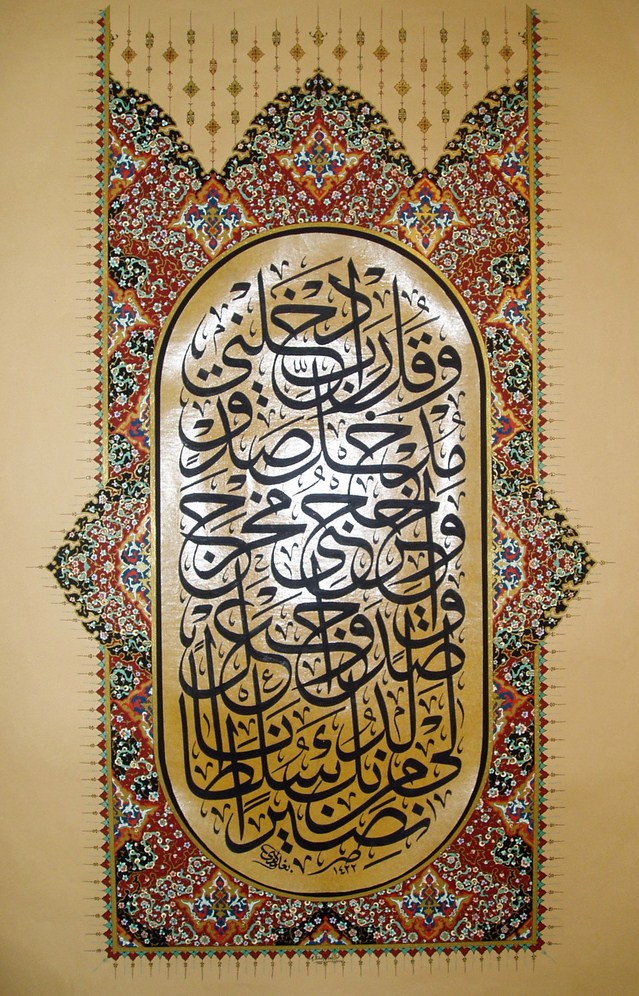 وَقُل رَّبِّ ادخلني
مُدخل صدقٍ
واخرجني مُخرج
صدقٍ واجعل
لي من لدُنك سُلطانًا
نَصِيرًا
١٤٢٢